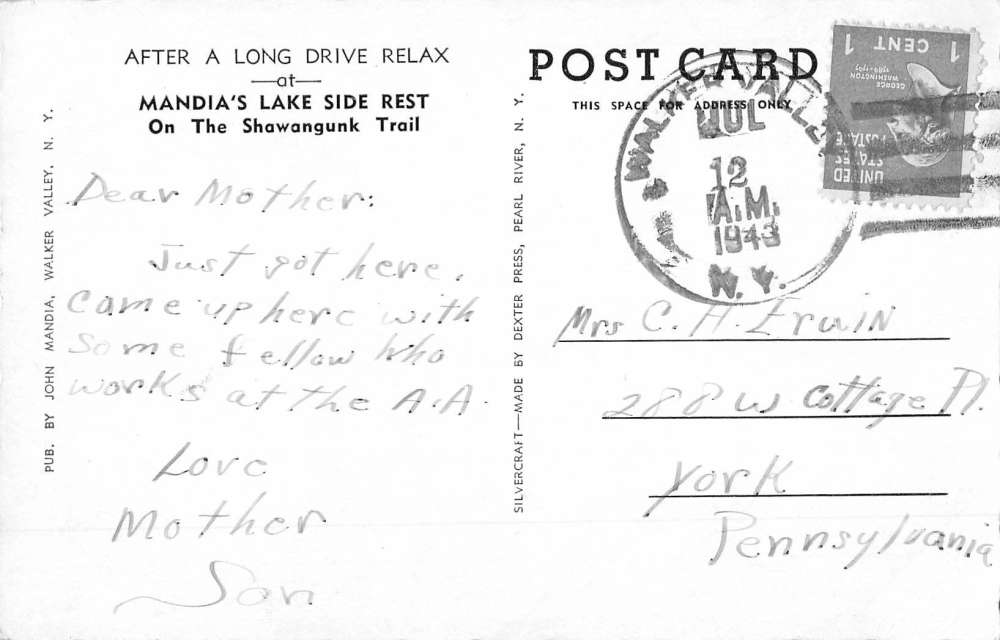 AFTER A LONG DRIVE RELAX
—at—
MANDIA'S LAKE SIDE REST
On The Shawangunk Trail
Dear Mother:
Just got here.
Came up here with
some fellow who
works at the A.A.
Love
Mother
Son
PUB. BY JOHN MANDIA, WALKER VALLEY, N. Y.
SILVERCRAFT—MADE BY DEXTER PRESS, PEARL RIVER, N. Y.
POST CARD
THIS SPACE FOR ADDRESS ONLY
WALKER VALLEY
JUL
12
A.M.
1943
N. Y.
1 CENT 1
GEORGE
WASHINGTON
1789-1797
UNITED
STATES
POSTAGE
Mrs C. H. Erwin
288 W Cottage Pl.
York
Pennsylvania